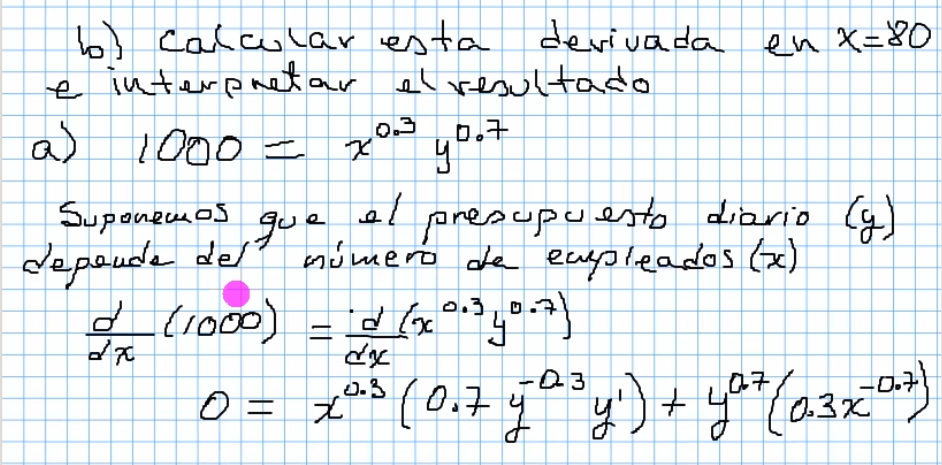 b) calcular esta derivada en x=80
e interpretar el resultado
a) 1000 = x^0.3 y^0.7
Suponemos que el presupuesto diario (y)
depende del número de empleados (x)
d/dx (1000) = d/dx (x^0.3 y^0.7)
0 = x^0.3 (0.7 y^-0.3 y') + y^0.7 (0.3x^-0.7)